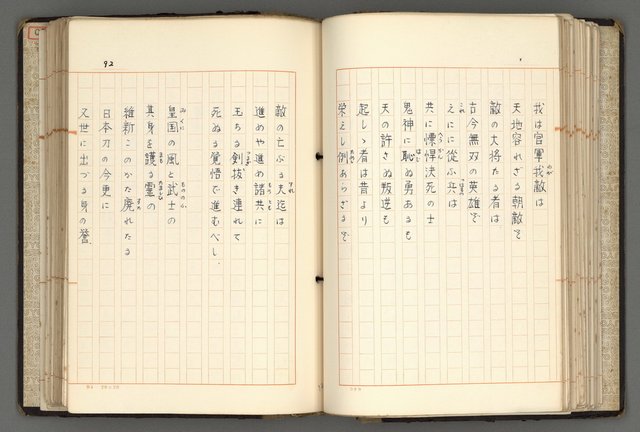 我は官軍我敵は
天地容れざる朝敵ぞ
敵の大将たる者は
古今無双の英雄で
之に従ふ兵は
共に慓悍決死の士
鬼神に恥ぬ勇あるも
天の許さぬ叛逆を
起しゝ者は昔より
栄えし例あらざるぞ
92
敵の亡ぶる夫迄は
進めや進め諸共に
玉ちる剣抜き連れて
死ぬる覚悟で進むべし。
皇国の風と武士の
其身を護る霊の
維新このかた廃れたる
日本刀の今更に
又世に出づる身の誉